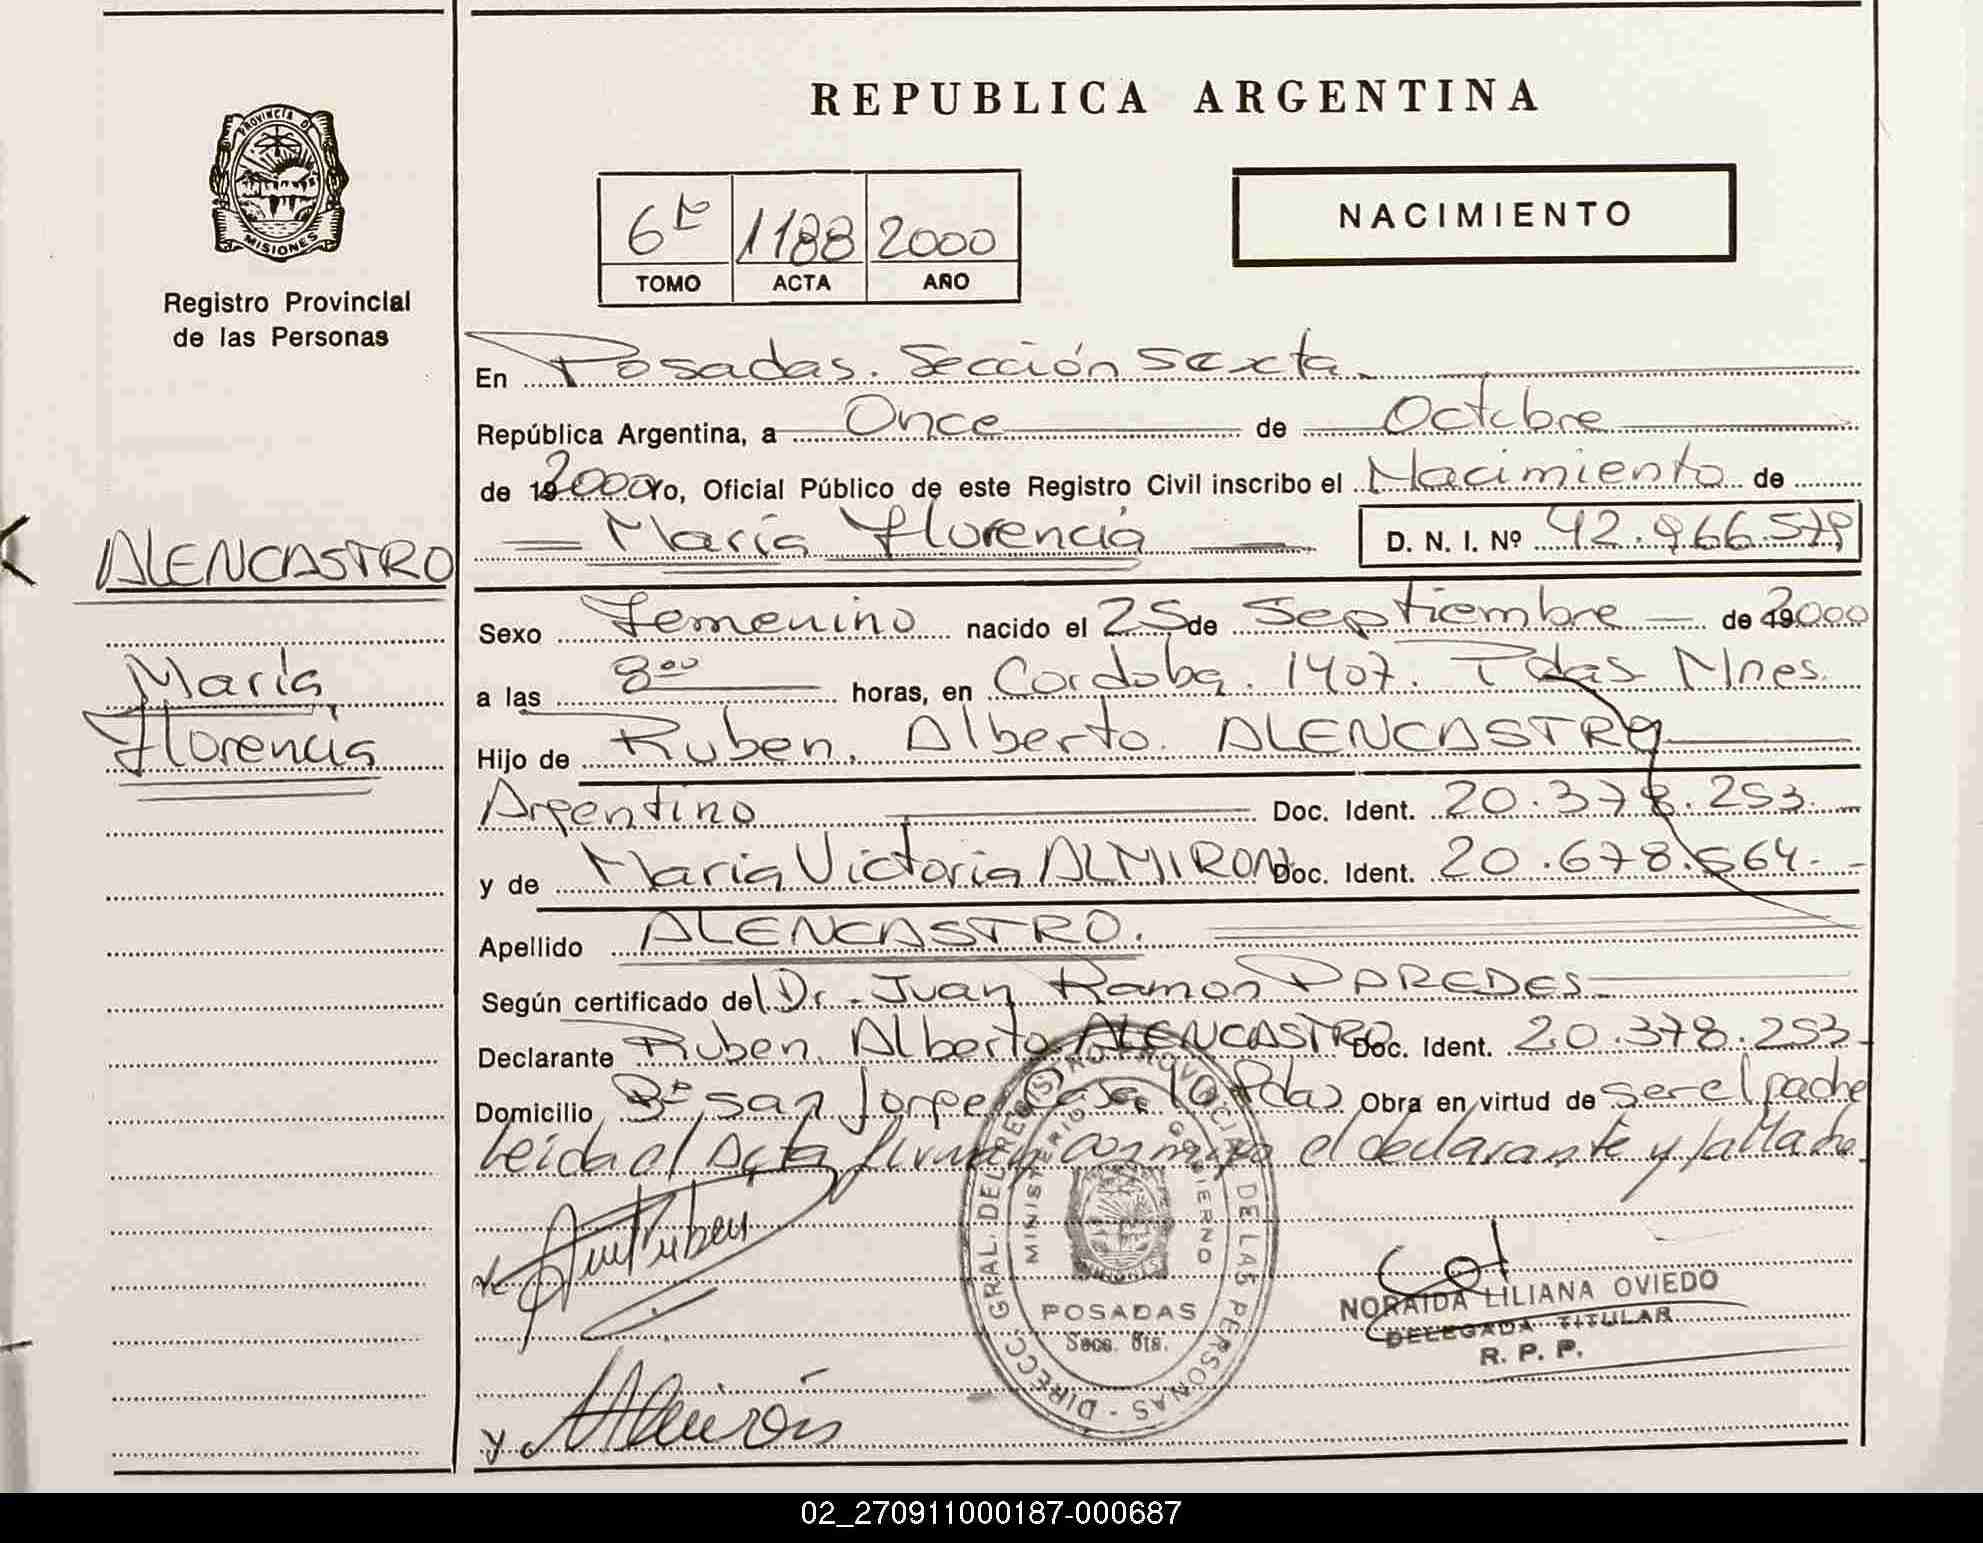 PROVINCIA DE
MISIONES
Registro Provincial
de las Personas
ALENCASTRO
María
Florencia
REPUBLICA ARGENTINA
6t 1188 2000
TOMO ACTA AÑO
NACIMIENTO
En Posadas. Sección Sexta.
República Argentina, a Once de Octubre
de 192000 Yo, Oficial Público de este Registro Civil inscribo el Nacimiento de
María Florencia D. N. I. Nº 42.966.579
Sexo Femenino nacido el 25 de Septiembre de 192000
a las 8 00 horas, en Cordoba. 1407. Pdas Mnes.
Hijo de Ruben. Alberto. ALENCASTRO
Argentino Doc. Ident. 20.378.253.
y de Maria Victoria ALMIRON Doc. Ident. 20.678.564.
Apellido ALENCASTRO.
Según certificado del Dr. Juan Ramon PAREDES
Declarante Ruben. Alberto ALENCASTRO Doc. Ident. 20.378.253
Domicilio Bº San Jorge Casa 10 Pdas Obra en virtud de ser el padre
Leida el Acta firman conmigo el declarante y la Madre.
DIRECC. GRAL. DEL REGISTRO PROVINCIAL DE LAS PERSONAS
MINISTERIO GOBIERNO
POSADAS
Secc. 6ta.
NORAIDA LILIANA OVIEDO
DELEGADA TITULAR
R. P. P.
Almirón
02_270911000187-000687